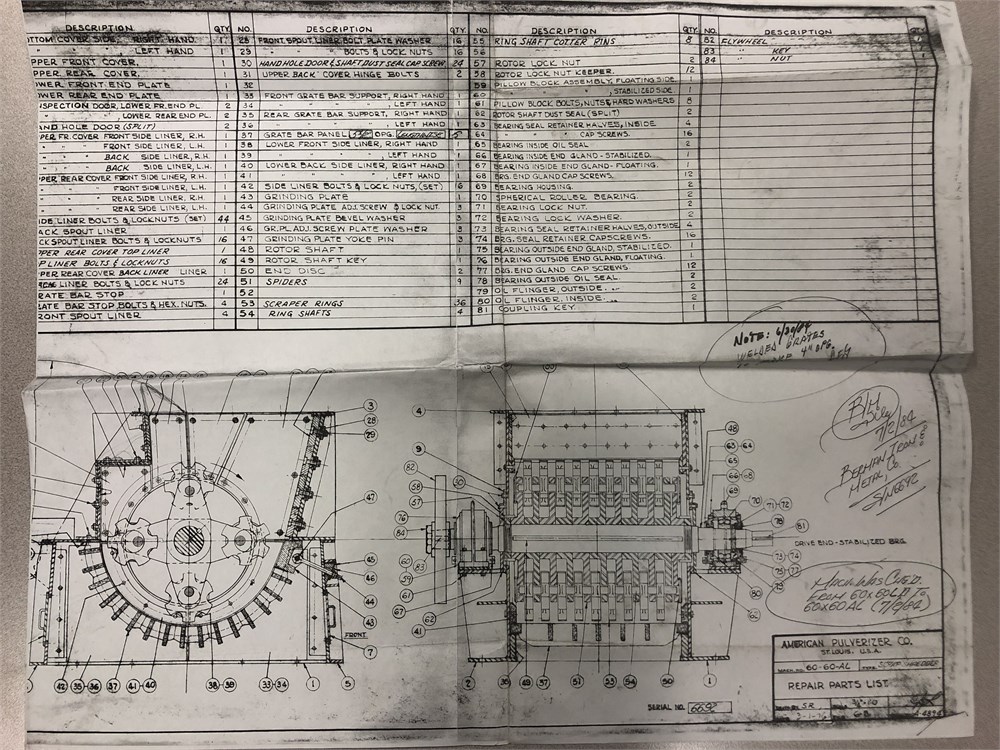 DESCRIPTION QTY. NO. DESCRIPTION QTY. NO. DESCRIPTION QTY. NO. DESCRIPTION
TTOM COVER SIDE, RIGHT HAND 1 28 FRONT SPOUT LINER BOLT PLATE WASHER 16 55 RING SHAFT COTTER PINS 8 82 FLYWHEEL
" " " LEFT HAND 1 29 " " " BOLTS & LOCK NUTS 16 56 83 " KEY
PPER FRONT COVER, 1 30 HAND HOLE DOOR & SHAFT DUST SEAL CAP SCREW 24 57 ROTOR LOCK NUT 2 84 " NUT
PPER REAR COVER, 1 31 UPPER BACK COVER HINGE BOLTS 2 58 ROTOR LOCK NUT KEEPER. 12
OWER FRONT END PLATE 1 32 59 PILLOW BLOCK ASSEMBLY, FLOATING SIDE 1
OWER REAR END PLATE 1 33 FRONT GRATE BAR SUPPORT, RIGHT HAND 1 60 " " " , STABILIZED SIDE 1
NSPECTION DOOR, LOWER FR. END PL. 2 34 " " " " , LEFT HAND 1 61 PILLOW BLOCK BOLTS, NUTS & HARD WASHERS 8
" " , LOWER REAR END PL. 2 35 REAR GRATE BAR SUPPORT, RIGHT HAND 1 62 ROTOR SHAFT DUST SEAL (SPLIT) 2
AND HOLE DOOR (SPLIT) 2 36 " " " " , LEFT HAND 1 63 BEARING SEAL RETAINER HALVES, INSIDE 4
PER FR. COVER FRONT SIDE LINER, R.H. 1 37 GRATE BAR PANEL OPG. 5 64 " " " CAP SCREWS. 16
" " " FRONT SIDE LINER, L.H. 1 38 LOWER FRONT SIDE LINER, RIGHT HAND 1 65 BEARING INSIDE OIL SEAL 2
" " " BACK SIDE LINER, R.H. 1 39 " " " " , LEFT HAND 1 66 BEARING INSIDE END GLAND - STABILIZED. 1
" " " BACK SIDE LINER, L.H. 1 40 LOWER BACK SIDE LINER, RIGHT HAND 1 67 BEARING INSIDE END GLAND - FLOATING. 1
PER, REAR COVER FRONT SIDE LINER, R.H. 1 41 " " " " , LEFT HAND 1 68 BRG. END GLAND CAP SCREWS. 12
" " " FRONT SIDE LINER, L.H. 1 42 SIDE LINER BOLTS & LOCK NUTS, (SET) 16 69 BEARING HOUSING. 2
" " " REAR SIDE LINER, R.H. 1 43 GRINDING PLATE 1 70 SPHERICAL ROLLER BEARING. 2
" " " REAR SIDE LINER, L.H. 1 44 GRINDING PLATE ADJ. SCREW & LOCK NUT. 3 71 BEARING LOCK NUT. 2
IDE LINER BOLTS & LOCKNUTS (SET) 44 45 GRINDING PLATE BEVEL WASHER 3 72 BEARING LOCK WASHER. 2
ACK SPOUT LINER 1 46 GR. PL. ADJ. SCREW PLATE WASHER 3 73 BEARING SEAL RETAINER HALVES, OUTSIDE 4
CK SPOUT LINER BOLTS & LOCKNUTS 16 47 GRINDING PLATE YOKE PIN 3 74 BRG. SEAL RETAINER CAPSCREWS. 16
PPER REAR COVER TOP LINER 1 48 ROTOR SHAFT 1 75 BEARING OUTSIDE END GLAND, STABILIZED. 1
P LINER BOLTS & LOCKNUTS 16 49 ROTOR SHAFT KEY 1 76 BEARING OUTSIDE END GLAND, FLOATING. 1
PER REAR COVER BACK LINER LINER 1 50 END DISC 2 77 BRG. END GLAND CAP SCREWS. 12
LINER BOLTS & LOCK NUTS 24 51 SPIDERS 9 78 BEARING OUTSIDE OIL SEAL. 2
RATE BAR STOP 1 52 79 OIL FLINGER, OUTSIDE. 2
ATE BAR STOP, BOLTS & HEX. NUTS. 4 53 SCRAPER RINGS 36 80 OIL FLINGER, INSIDE. 2
RONT SPOUT LINER 4 54 RING SHAFTS 4 81 COUPLING KEY. 1
NOTE: 6/20/84
WELDED GRATES
4" OPG.
7/2/84
BERMAN IRON &
METAL CO.
S/N 6692
3
28
29
47
45
46
44
43
FRONT
7
42 35-36 37 41-40 38-39 33-34 1 5
4
9
82
58
57
50
76
84
60
83
59
61
67
62
41
2 49 37 51 53 54 50 1
48
63-64
65
69
70 71-72
78
81
DRIVE END - STABILIZED BRG.
73 74
77
79
80
62
FROM 60x60
60x60 AL (7/9/84)
AMERICAN PULVERIZER CO.
ST. LOUIS, U.S.A.
60-60-AL SCRAP SHREDDER
REPAIR PARTS LIST
SR
SERIAL NO. 6692